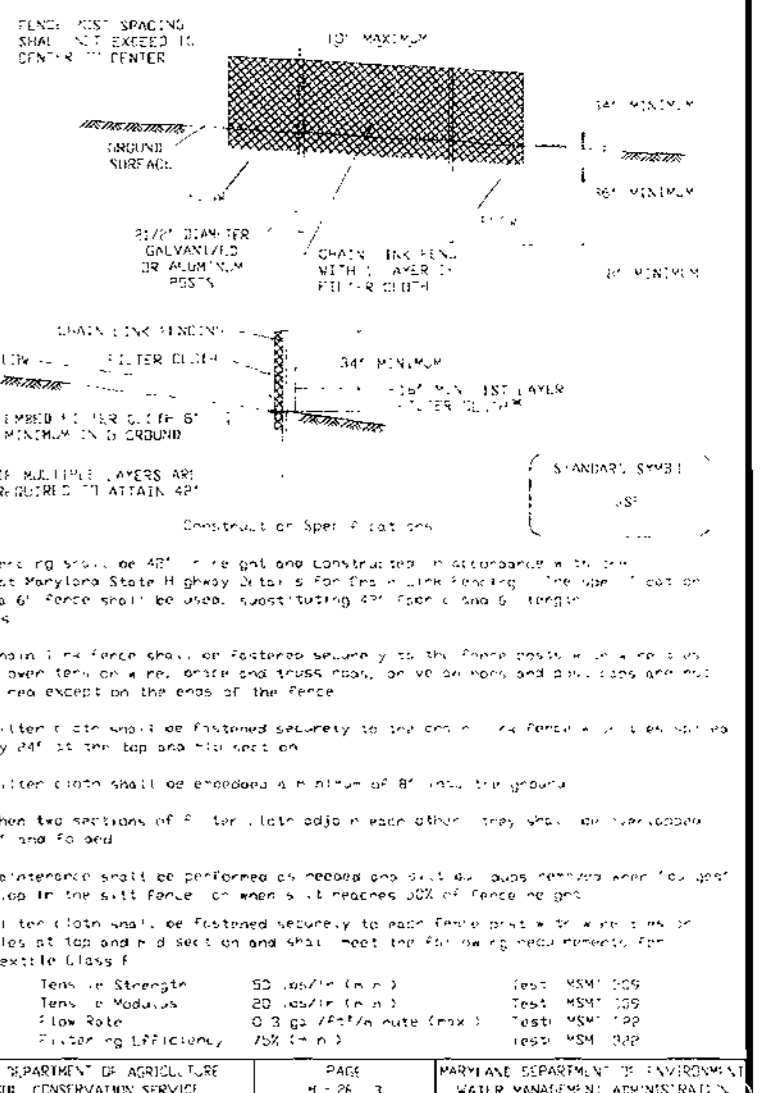 FENCE POST SPACING
SHALL NOT EXCEED 10
CENTER TO CENTER
10' MAXIMUM
34" MINIMUM
GROUND
SURFACE
36" MINIMUM
FLOW
FLOW
21/2" DIAMETER
GALVANIZED
OR ALUMINUM
POSTS
CHAIN LINK FENC
WITH 1 LAYER OF
FILTER CLOTH
8" MINIMUM
CHAIN LINK FENCING
FLOW
FILTER CLOTH
34" MINIMUM
16" MIN 1ST LAYER
FILTER CLOTH*
EMBED FILTER CLOTH 8"
MINIMUM INTO GROUND
IF MULTIPLE LAYERS ARE
REQUIRED TO ATTAIN 42"
STANDARD SYMBOL
SSF
Construction Specifications
encing shall be 42" in height and constructed in accordance with the
st Maryland State Highway Details for Chain Link Fencing. The specification
a 6' fence shall be used, substituting 42" fabric and 6' length
s
hain link fence shall be fastened securely to the fence posts with wire ties
lower tension wire, brace and truss rods, drive anchors and post caps are not
ired except on the ends of the fence
ilter cloth shall be fastened securely to the chain link fence with ties spaced
y 24" at the top and mid section
ilter cloth shall be embedded a minimum of 8" into the ground
hen two sections of filter cloth adjoin each other, they shall be overlapped
" and folded
aintenance shall be performed as needed and silt buildups removed when "bulges"
lop in the silt fence, or when silt reaches 50% of fence height
ilter cloth shall be fastened securely to each fence post with wire ties or
les at top and mid section and shall meet the following requirements for
extile Class F
Tensile Strength 50 lbs/in (min) Test MSMT 509
Tensile Modulus 20 lbs/in (min) Test MSMT 509
Flow Rate 0.3 gal/ft²/minute (max) Test MSMT 322
Filtering Efficiency 75% (min) Test MSMT 322
DEPARTMENT OF AGRICULTURE
CONSERVATION SERVICE
PAGE
H - 26 3
MARYLAND DEPARTMENT OF ENVIRONMENT
WATER MANAGEMENT ADMINISTRATION